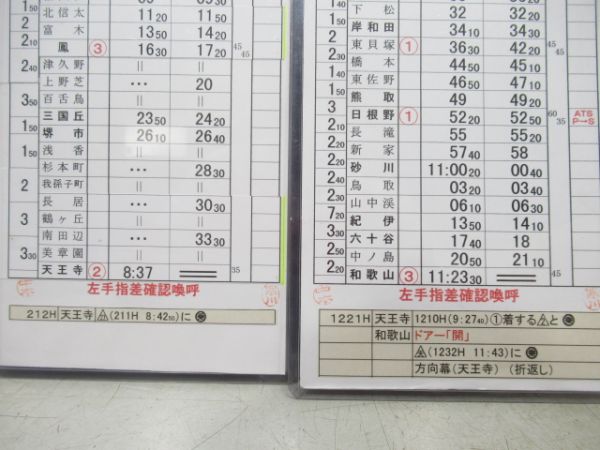 1 50 北信太 11 20 12 20
2 富木 13 50 14 20
2 10 鳳 ③ 16 30 17 20 45 45
2 40 津久野 || ||
上野芝 … 20
3 50 百舌鳥 || ||
三国丘 23 50 24 20
堺市 26 10 26 40
浅香 || ||
杉本町 … 28 30
2 我孫子町 || ||
長居 … 30 30
3 鶴ヶ丘 || ||
南田辺 … 33 30
3 30 美章園 || ||
天王寺 ② 8:37 35
左手指差確認喚呼
212H 天王寺 (211H 8:42 50)に
下松 32 32
岸和田 34 10 34 30
2 東貝塚 ① 36 30 42 20 45 45
橋本 44 50 45 10
東佐野 46 50 47 10
熊取 49 49 20
日根野 ① 52 20 52 50 60 35 ATS P→S
長滝 55 55 20
新家 57 40 58
砂川 11:00 20 00 40
鳥取 03 20 03 40
山中渓 06 10 06 30
紀伊 13 50 14 10
六十谷 17 40 18
中ノ島 20 50 21 10
2 20 和歌山 ③ 11:23 30
左手指差確認喚呼
1221H 天王寺 1210H(9:27 40)①着する と
和歌山 ドアー「開」
(1232H 11:43)に
方向幕(天王寺) (折返し)